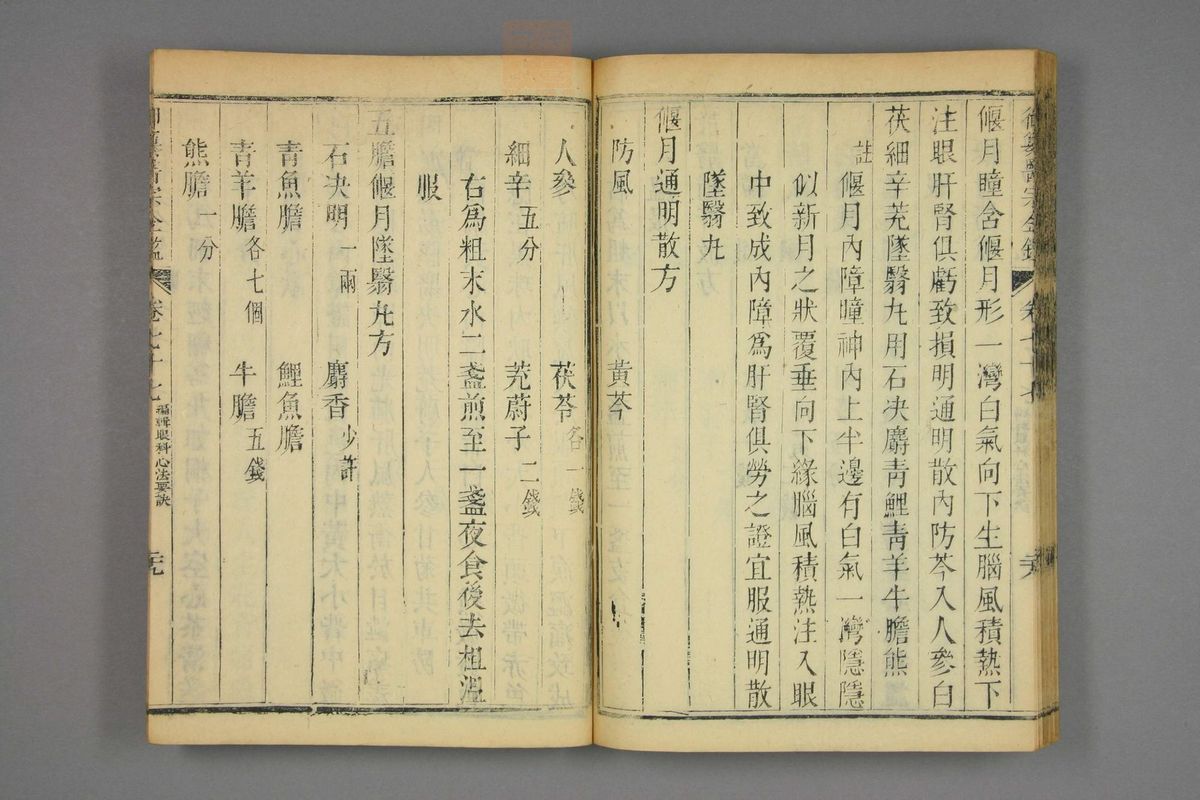 御纂醫宗金鑑 卷七十七 芫
偃月瞳含偃月形一灣白氣向下生腦風積熱下
注眼肝腎俱虧致損明通明散內防芩入人參白
茯細辛茺墜翳丸用石决麝青鯉靑羊牛膽熊
註
偃月內障瞳神內上半邊有白氣一灣隱隱
似新月之狀覆垂向下緣腦風積熱注入眼
中致成內障爲肝腎俱勞之證宜服通明散
墜翳丸
偃月通明散方
防風 黃芩
人參 茯苓各一錢
細辛五分 茺蔚子二錢
右爲粗末水二盞煎至一盞夜食後去柤溫
服
五膽偃月墜翳丸方
石决明一兩 麝香少許
青魚膽 鯉魚膽
青羊膽各七個 牛膽五錢
熊膽一分
編輯眼科心法要訣